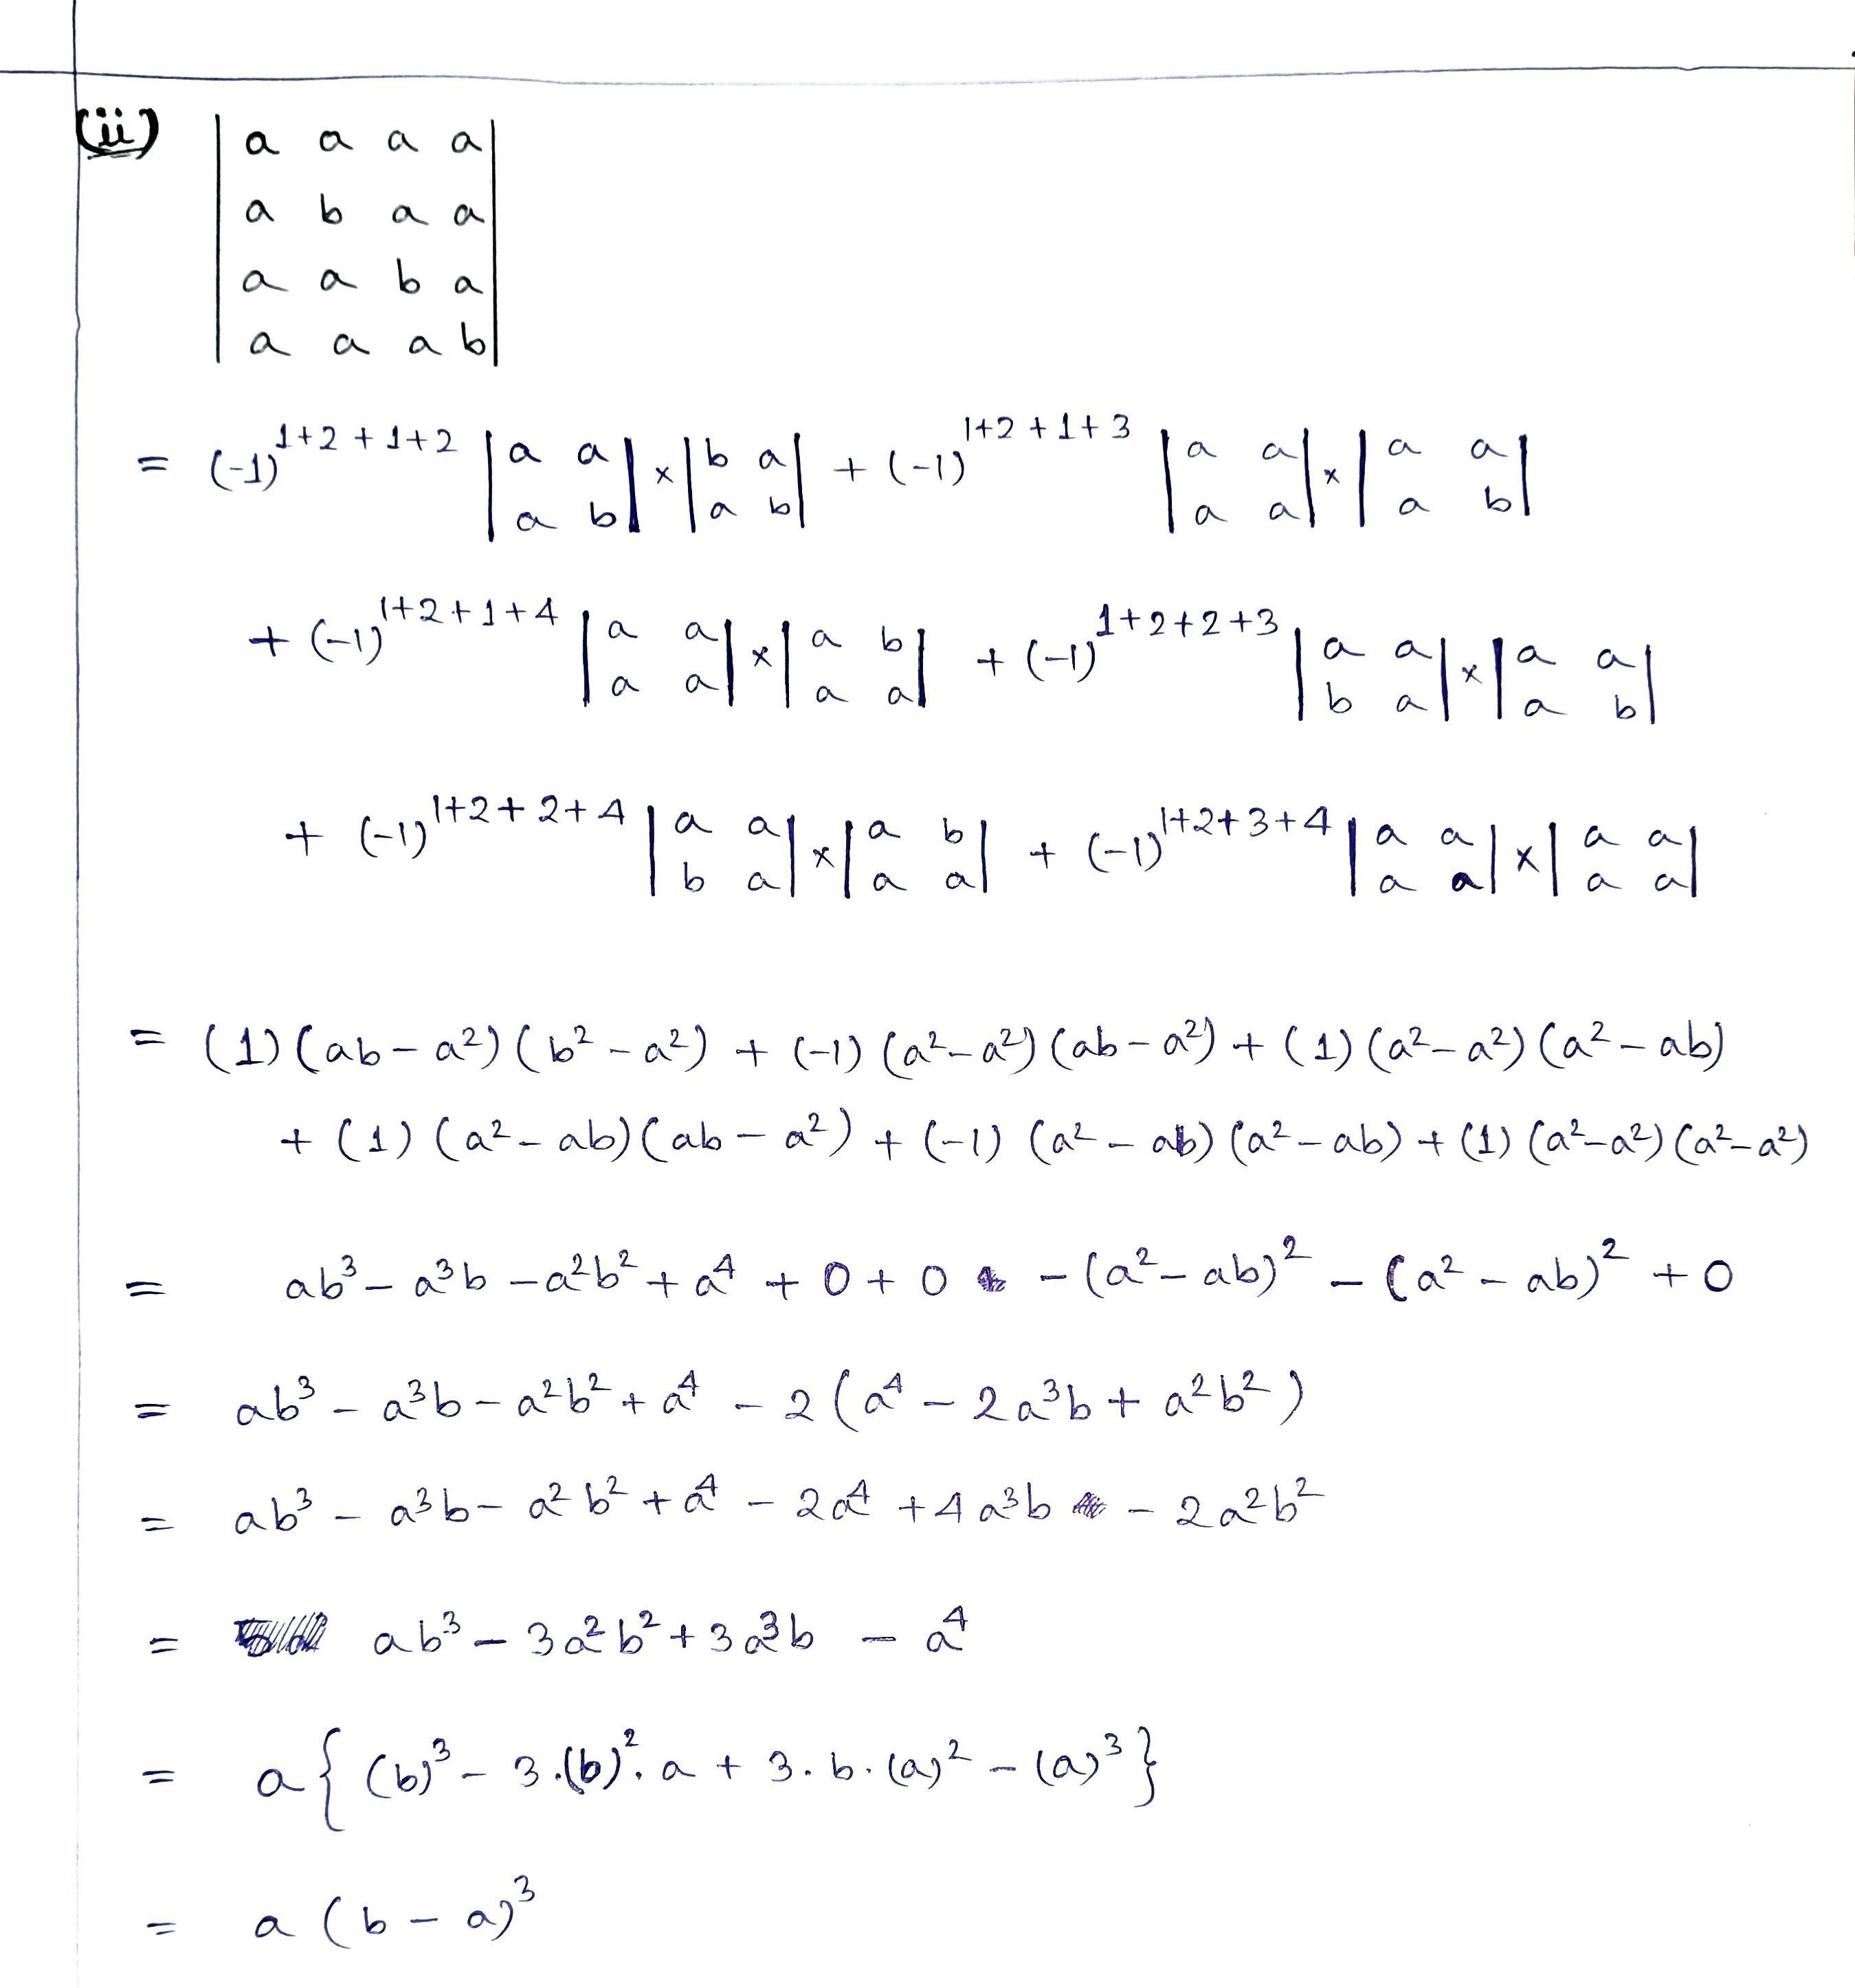 (ii) | a a a a |
| a b a a |
| a a b a |
| a a a b |
= (-1)^{1+2+1+2} | a a ; a b | × | b a ; a b | + (-1)^{1+2+1+3} | a a ; a a | × | a a ; a b |
+ (-1)^{1+2+1+4} | a a ; a a | × | a b ; a a | + (-1)^{1+2+2+3} | a a ; b a | × | a a ; a b |
+ (-1)^{1+2+2+4} | a a ; b a | × | a b ; a a | + (-1)^{1+2+3+4} | a a ; a a | × | a a ; a a |
= (1)(ab - a²)(b² - a²) + (-1)(a² - a²)(ab - a²) + (1)(a² - a²)(a² - ab)
+ (1)(a² - ab)(ab - a²) + (-1)(a² - ab)(a² - ab) + (1)(a² - a²)(a² - a²)
= ab³ - a³b - a²b² + a⁴ + 0 + 0 - (a² - ab)² - (a² - ab)² + 0
= ab³ - a³b - a²b² + a⁴ - 2(a⁴ - 2a³b + a²b²)
= ab³ - a³b - a²b² + a⁴ - 2a⁴ + 4a³b - 2a²b²
= ab³ - 3a²b² + 3a³b - a⁴
= a{(b)³ - 3.(b)².a + 3.b.(a)² - (a)³}
= a(b - a)³